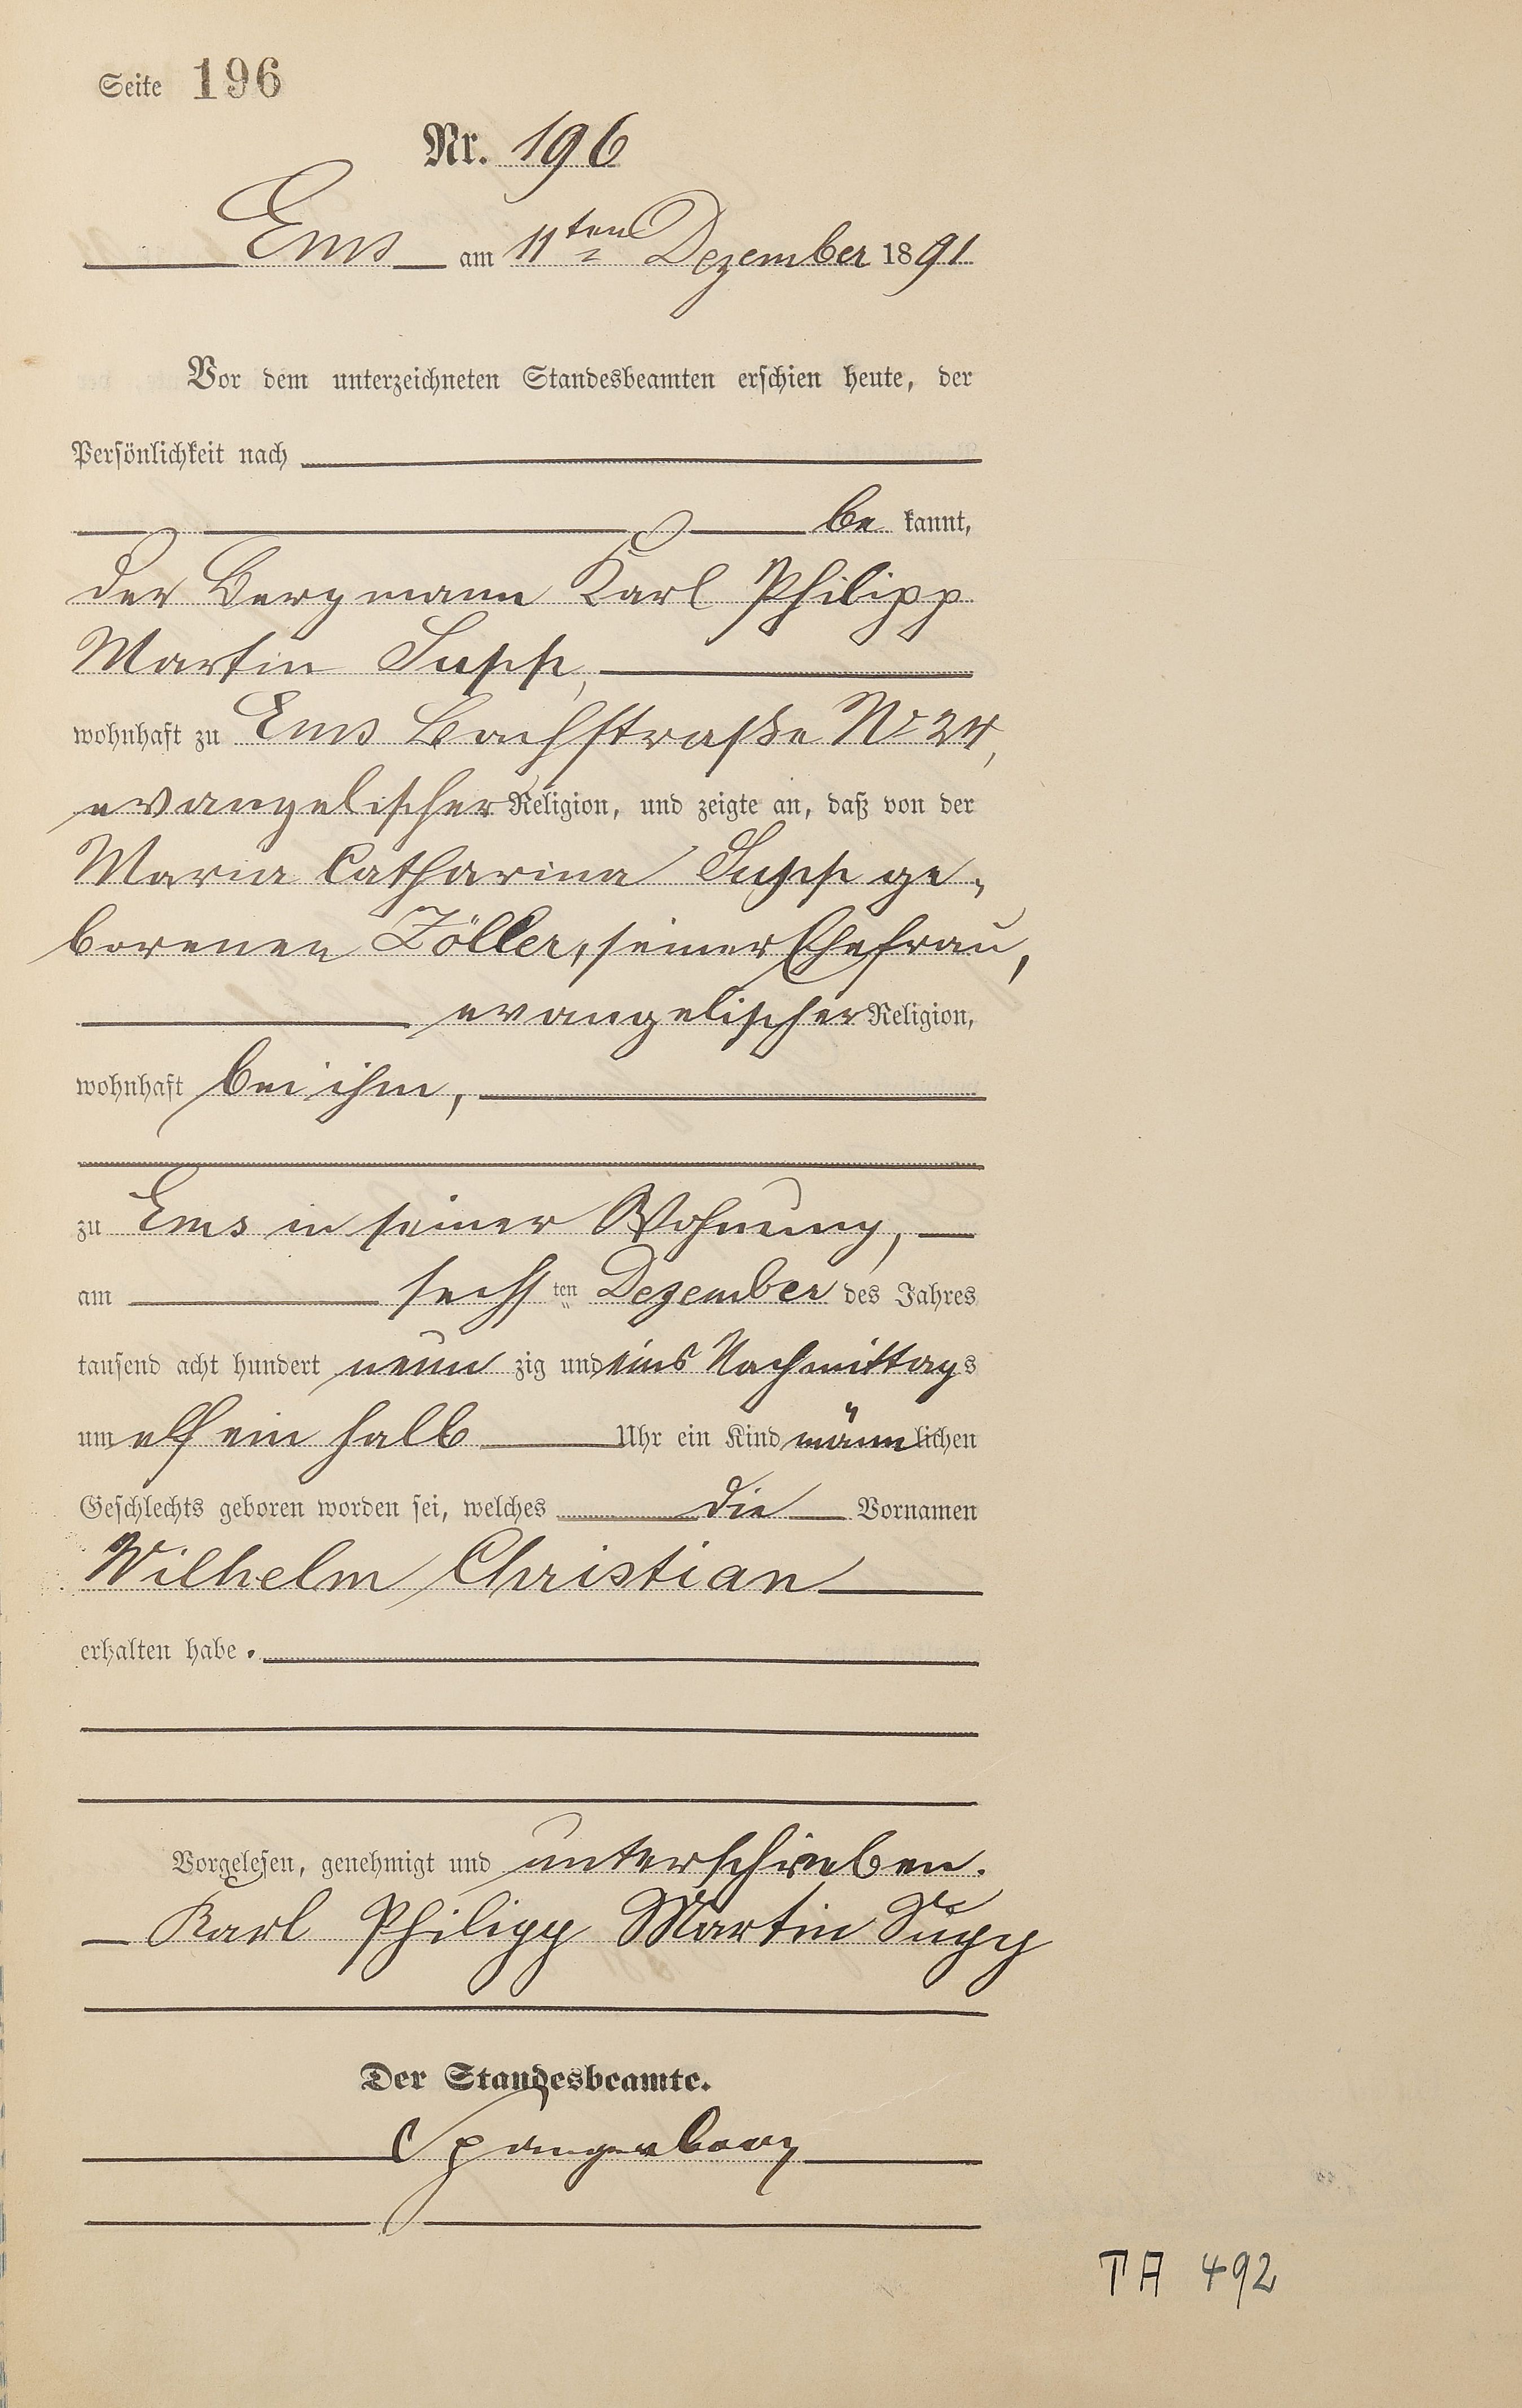 Seite 196
Nr. 196
Ems am 11ten Dezember 1891
Vor dem unterzeichneten Standesbeamten erschien heute, der
Persönlichkeit nach
be kannt,
der Bergmann Karl Philipp
Martin Supp,
wohnhaft zu Ems Bachstraße No 24,
evangelischer Religion, und zeigte an, daß von der
Maria Catharina Supp ge-
borenen Zöller, seiner Ehefrau,
evangelischer Religion,
wohnhaft bei ihm,
zu Ems in seiner Wohnung,
am sechsten Dezember des Jahres
tausend acht hundert neun zig und eins Nachmittags
um elf ein halb Uhr ein Kind männlichen
Geschlechts geboren worden sei, welches die Vornamen
Wilhelm Christian
erhalten habe.
Vorgelesen, genehmigt und unterschrieben.
Karl Philipp Martin Supp
Der Standesbeamte.
Spangenberg
TA 492